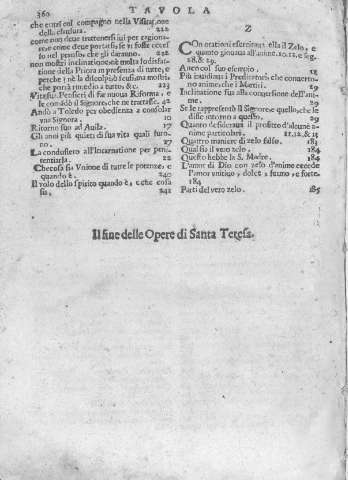 360
TAVOLA
che entri col compagno nella Visitatione
della clausura. 222
come non deue trattenersi iui per ragionare
e come deue portarsi, se vi fosse eccesso
nel pranso, che gli daranno. 222
non mostri inclinatione, nè molta sodisfattione
della Priora in presenza di tutte, e
perche; nè la discolpi, se si usano mostra
che porrà rimedio a tutto, &c. 223
Vitesu. Pensieri di far nuoua Riforma, e
le comādò il Signore, che ne trattasse. 42
Andò à Toledo per obedienza a consolar
vna Signora. 10
Ritorno suo ad Auila. 17
Gli anni più quieti di sua vita quali furono.
27
La condussero all'Incarnatione per penitentiarla.
22
Che cosa sia Vnione di tutte le potenze, e
quando è. 240
Il volo dello spirito quando è, e che cosa
sia. 242
Z
COn orationi esercitaua ella il Zelo, e
quanto giouaua all'anime. 10. 12. e seg.
28. & 29.
Anco col suo esempio. 12
Più inuidiaua i Predicatori, che conuertono
anime, che i Martiri. 29
Inclinatione sua alla conuersione dell'anime.
29
Se le rappresentò il Signore: e quello, che le
disse intorno a questo. 29
Quanto desideraua il profitto d'alcune anime
particolari. 11. 12. & 13
Quattro maniere di zelo falso. 183
Qual sia il vero zelo. 184
Questo hebbe la S. Madre. 184
L'amor di Dio con zelo d'anime eccede
l'amor vnitiuo, dolce, a suauo, e forte.
184
Parti del vero zelo. 185
Il fine delle Opere di Santa Teresa.